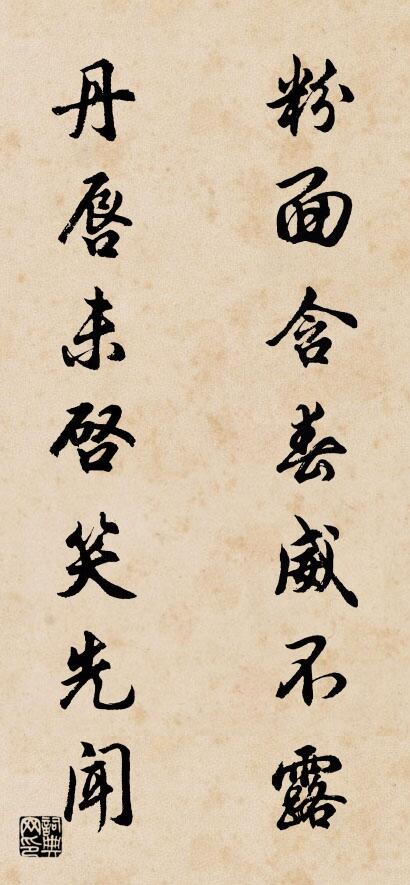 粉面含春威不露
丹唇未启笑先闻
詞典网印